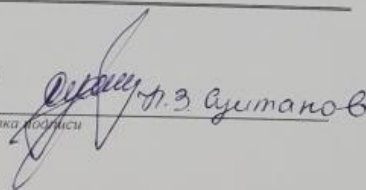 З. Султанов
ка подписи